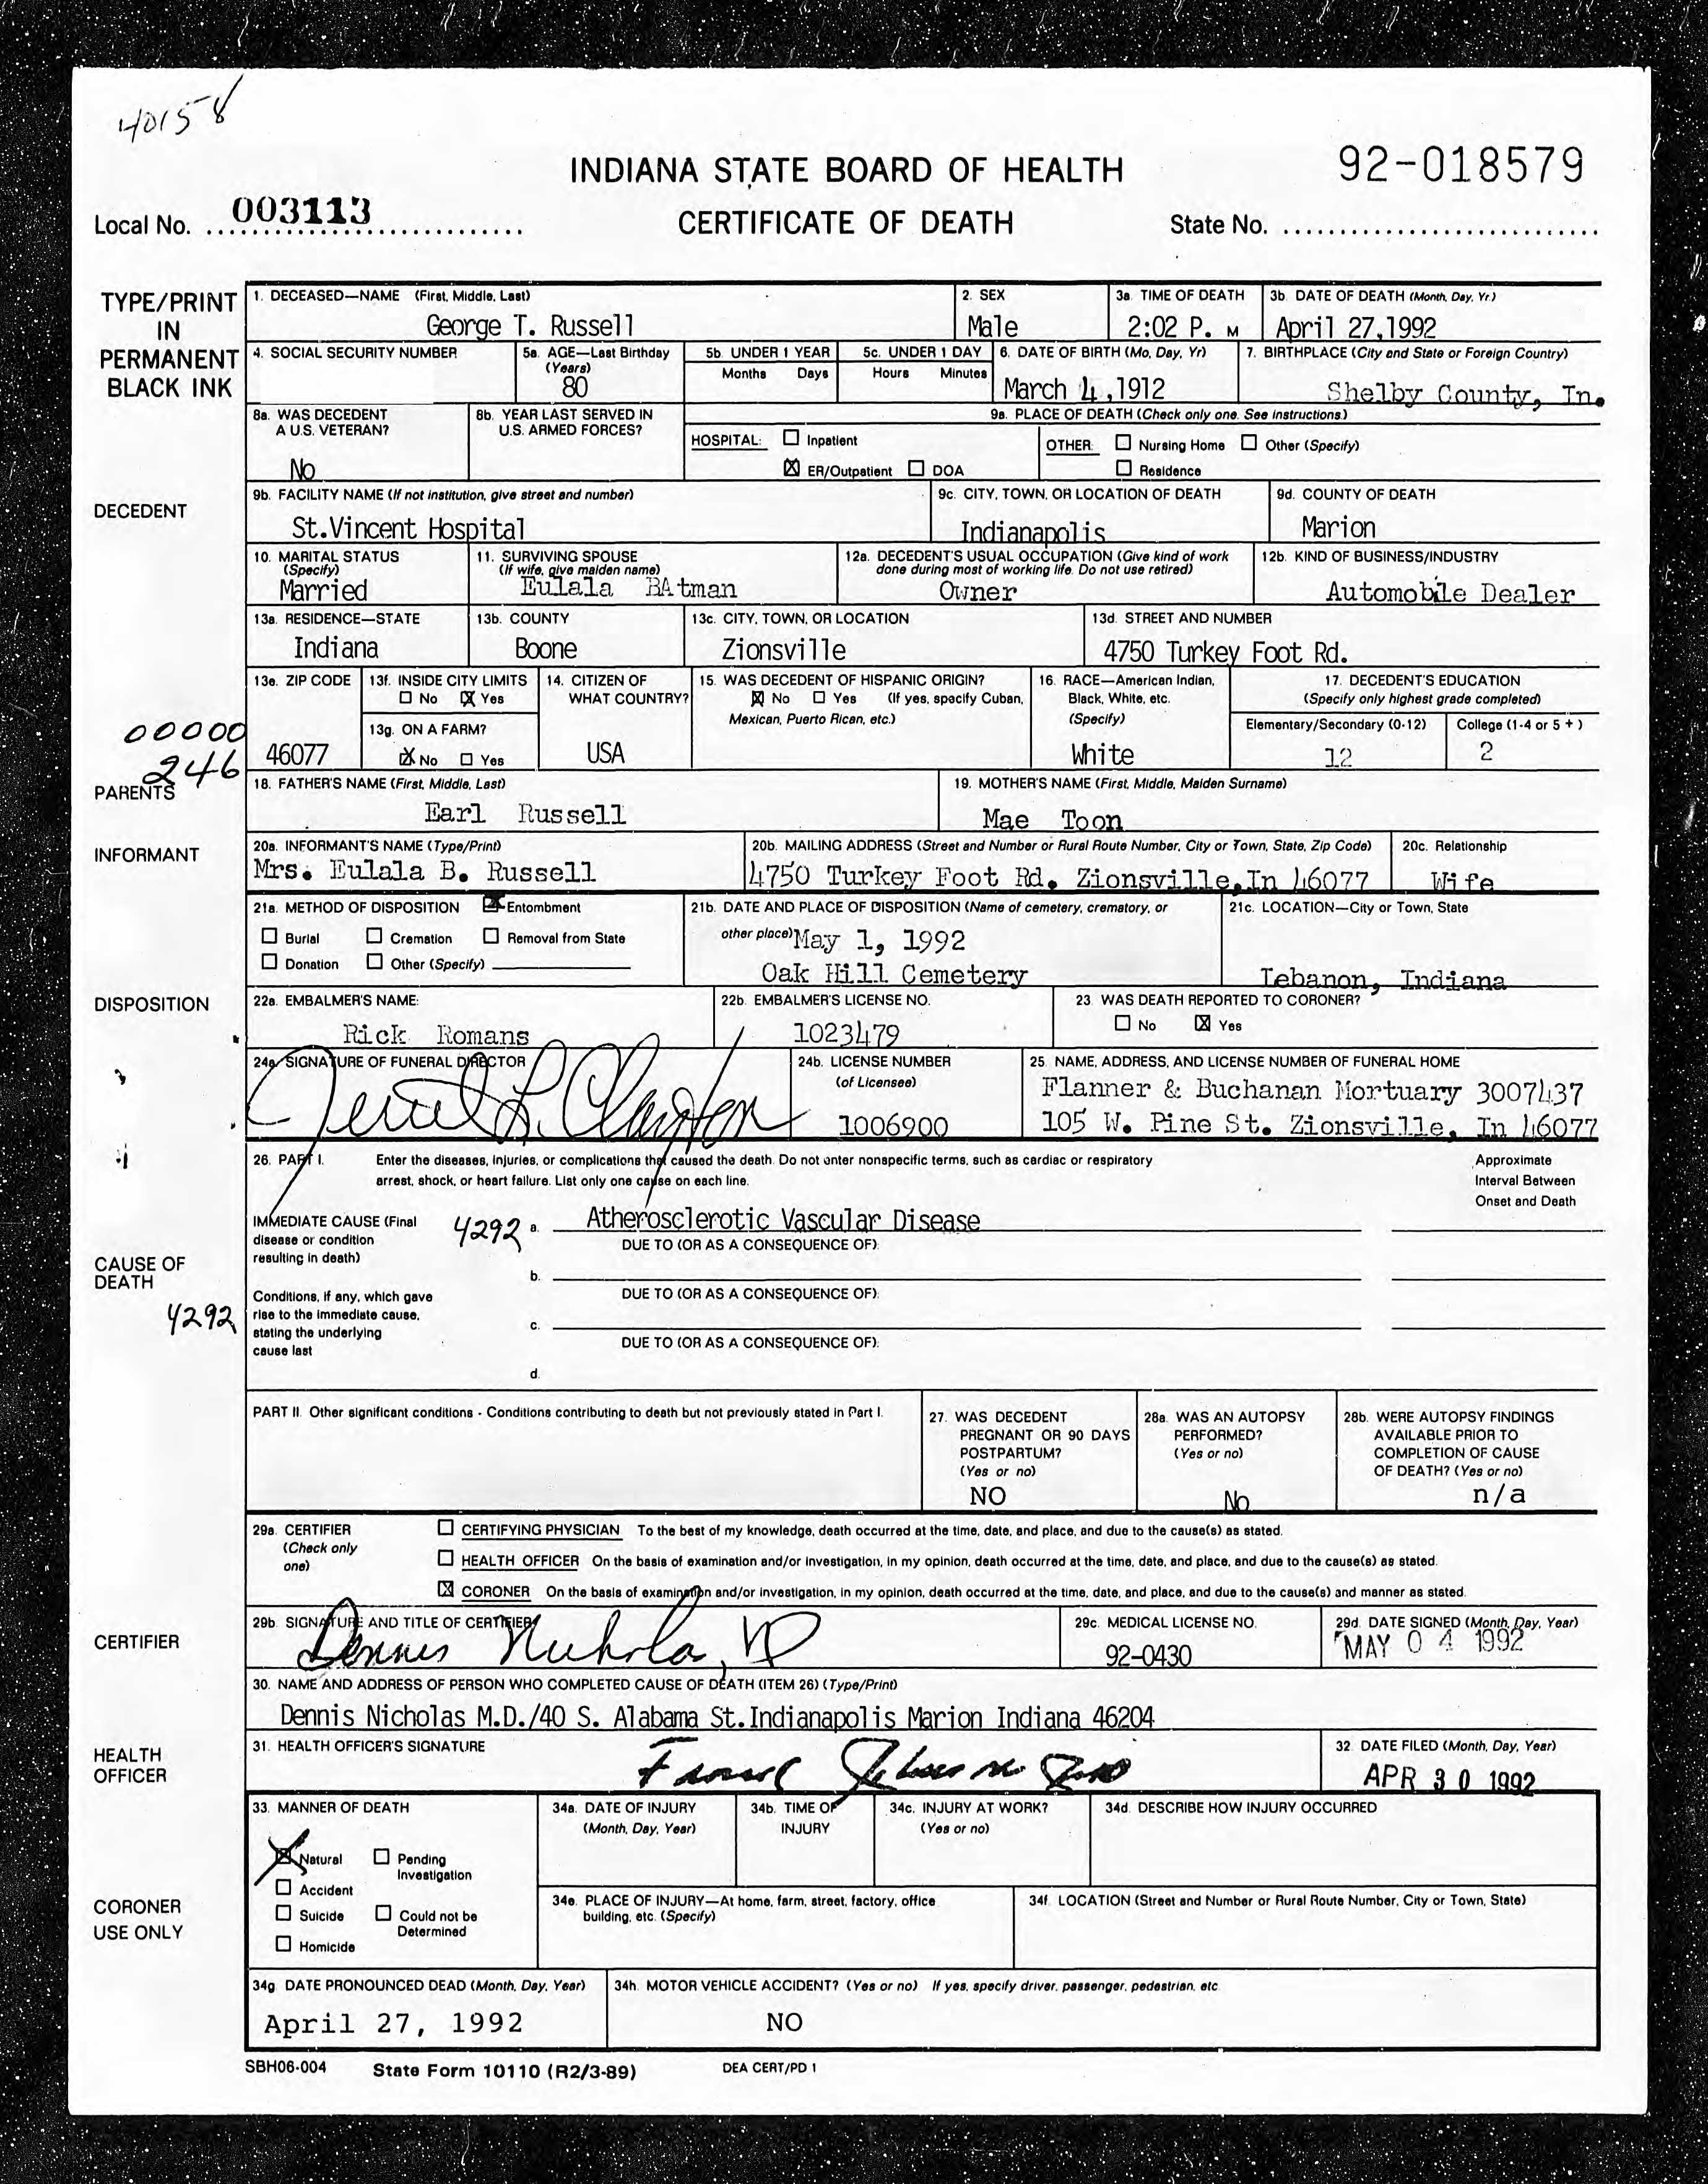 40158
INDIANA STATE BOARD OF HEALTH
92-018579
Local No. 003113
CERTIFICATE OF DEATH
State No.
TYPE/PRINT IN PERMANENT BLACK INK
1. DECEASED—NAME (First, Middle, Last)
George T. Russell
2. SEX
Male
3a. TIME OF DEATH
2:02 P. M
3b. DATE OF DEATH (Month, Day, Yr.)
April 27,1992
4. SOCIAL SECURITY NUMBER
5a. AGE—Last Birthday (Years)
80
5b. UNDER 1 YEAR
Months Days
5c. UNDER 1 DAY
Hours Minutes
6. DATE OF BIRTH (Mo, Day, Yr)
March 4,1912
7. BIRTHPLACE (City and State or Foreign Country)
Shelby County, In.
8a. WAS DECEDENT A U.S. VETERAN?
No
8b. YEAR LAST SERVED IN U.S. ARMED FORCES?
9a. PLACE OF DEATH (Check only one. See instructions.)
HOSPITAL: ☐ Inpatient
☒ ER/Outpatient ☐ DOA
OTHER: ☐ Nursing Home ☐ Other (Specify)
☐ Residence
DECEDENT
9b. FACILITY NAME (If not institution, give street and number)
St.Vincent Hospital
9c. CITY, TOWN, OR LOCATION OF DEATH
Indianapolis
9d. COUNTY OF DEATH
Marion
10. MARITAL STATUS (Specify)
Married
11. SURVIVING SPOUSE (If wife, give maiden name)
Eulala BAtman
12a. DECEDENT'S USUAL OCCUPATION (Give kind of work done during most of working life. Do not use retired)
Owner
12b. KIND OF BUSINESS/INDUSTRY
Automobile Dealer
13a. RESIDENCE—STATE
Indiana
13b. COUNTY
Boone
13c. CITY, TOWN, OR LOCATION
Zionsville
13d. STREET AND NUMBER
4750 Turkey Foot Rd.
13e. ZIP CODE
46077
13f. INSIDE CITY LIMITS
☐ No ☒ Yes
13g. ON A FARM?
☒ No ☐ Yes
14. CITIZEN OF WHAT COUNTRY?
USA
15. WAS DECEDENT OF HISPANIC ORIGIN?
☒ No ☐ Yes (If yes, specify Cuban, Mexican, Puerto Rican, etc.)
16. RACE—American Indian, Black, White, etc. (Specify)
White
17. DECEDENT'S EDUCATION
(Specify only highest grade completed)
Elementary/Secondary (0-12) College (1-4 or 5 + )
12 2
00000
246
PARENTS
18. FATHER'S NAME (First, Middle, Last)
Earl Russell
19. MOTHER'S NAME (First, Middle, Maiden Surname)
Mae Toon
INFORMANT
20a. INFORMANT'S NAME (Type/Print)
Mrs. Eulala B. Russell
20b. MAILING ADDRESS (Street and Number or Rural Route Number, City or Town, State, Zip Code)
4750 Turkey Foot Rd. Zionsville,In 46077
20c. Relationship
Wife
21a. METHOD OF DISPOSITION ☒ Entombment
☐ Burial ☐ Cremation ☐ Removal from State
☐ Donation ☐ Other (Specify)
21b. DATE AND PLACE OF DISPOSITION (Name of cemetery, crematory, or other place)
May 1, 1992
Oak Hill Cemetery
21c. LOCATION—City or Town, State
Lebanon, Indiana
DISPOSITION
22a. EMBALMER'S NAME:
Rick Romans
22b. EMBALMER'S LICENSE NO.
1023479
23. WAS DEATH REPORTED TO CORONER?
☐ No ☒ Yes
24a. SIGNATURE OF FUNERAL DIRECTOR
24b. LICENSE NUMBER (of Licensee)
1006900
25. NAME, ADDRESS, AND LICENSE NUMBER OF FUNERAL HOME
Flanner & Buchanan Mortuary 3007437
105 W. Pine St. Zionsville, In 46077
26. PART I. Enter the diseases, injuries, or complications that caused the death. Do not enter nonspecific terms, such as cardiac or respiratory
arrest, shock, or heart failure. List only one cause on each line.
Approximate Interval Between Onset and Death
CAUSE OF DEATH
4292
IMMEDIATE CAUSE (Final disease or condition resulting in death)
4292 a. Atherosclerotic Vascular Disease
DUE TO (OR AS A CONSEQUENCE OF):
b.
Conditions, if any, which gave rise to the immediate cause, stating the underlying cause last
DUE TO (OR AS A CONSEQUENCE OF):
c.
DUE TO (OR AS A CONSEQUENCE OF):
d.
PART II. Other significant conditions - Conditions contributing to death but not previously stated in Part I.
27. WAS DECEDENT PREGNANT OR 90 DAYS POSTPARTUM? (Yes or no)
NO
28a. WAS AN AUTOPSY PERFORMED? (Yes or no)
No
28b. WERE AUTOPSY FINDINGS AVAILABLE PRIOR TO COMPLETION OF CAUSE OF DEATH? (Yes or no)
n/a
29a. CERTIFIER (Check only one)
☐ CERTIFYING PHYSICIAN To the best of my knowledge, death occurred at the time, date, and place, and due to the cause(s) as stated.
☐ HEALTH OFFICER On the basis of examination and/or investigation, in my opinion, death occurred at the time, date, and place, and due to the cause(s) as stated.
☒ CORONER On the basis of examination and/or investigation, in my opinion, death occurred at the time, date, and place, and due to the cause(s) and manner as stated.
CERTIFIER
29b. SIGNATURE AND TITLE OF CERTIFIER
Dennis Nichola
29c. MEDICAL LICENSE NO.
92-0430
29d. DATE SIGNED (Month, Day, Year)
MAY 04 1992
30. NAME AND ADDRESS OF PERSON WHO COMPLETED CAUSE OF DEATH (ITEM 26) (Type/Print)
Dennis Nicholas M.D./40 S. Alabama St.Indianapolis Marion Indiana 46204
HEALTH OFFICER
31. HEALTH OFFICER'S SIGNATURE
32. DATE FILED (Month, Day, Year)
APR 30 1992
33. MANNER OF DEATH
☒ Natural ☐ Pending Investigation
☐ Accident
☐ Suicide ☐ Could not be Determined
☐ Homicide
CORONER USE ONLY
34a. DATE OF INJURY (Month, Day, Year)
34b. TIME OF INJURY
34c. INJURY AT WORK? (Yes or no)
34d. DESCRIBE HOW INJURY OCCURRED
34e. PLACE OF INJURY—At home, farm, street, factory, office building, etc. (Specify)
34f. LOCATION (Street and Number or Rural Route Number, City or Town, State)
34g. DATE PRONOUNCED DEAD (Month, Day, Year)
April 27, 1992
34h. MOTOR VEHICLE ACCIDENT? (Yes or no) If yes, specify driver, passenger, pedestrian, etc.
NO
SBH06-004 State Form 10110 (R2/3-89) DEA CERT/PD 1